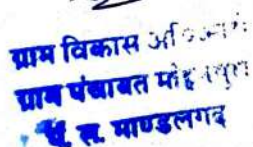 ग्राम विकास अधिकारी
ग्राम पंचायत मोहनपुरा
पं. स. माण्डलगढ़